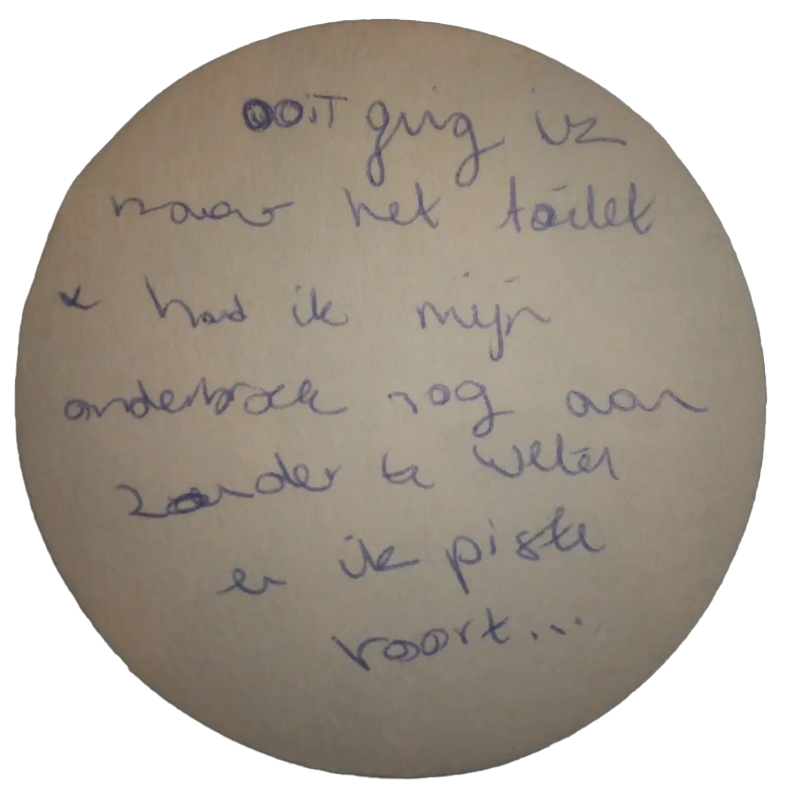 OOIT ging ik
naar het toilet
& had ik mijn
onderbroek nog aan
zonder te weten
en ik piste
voort...